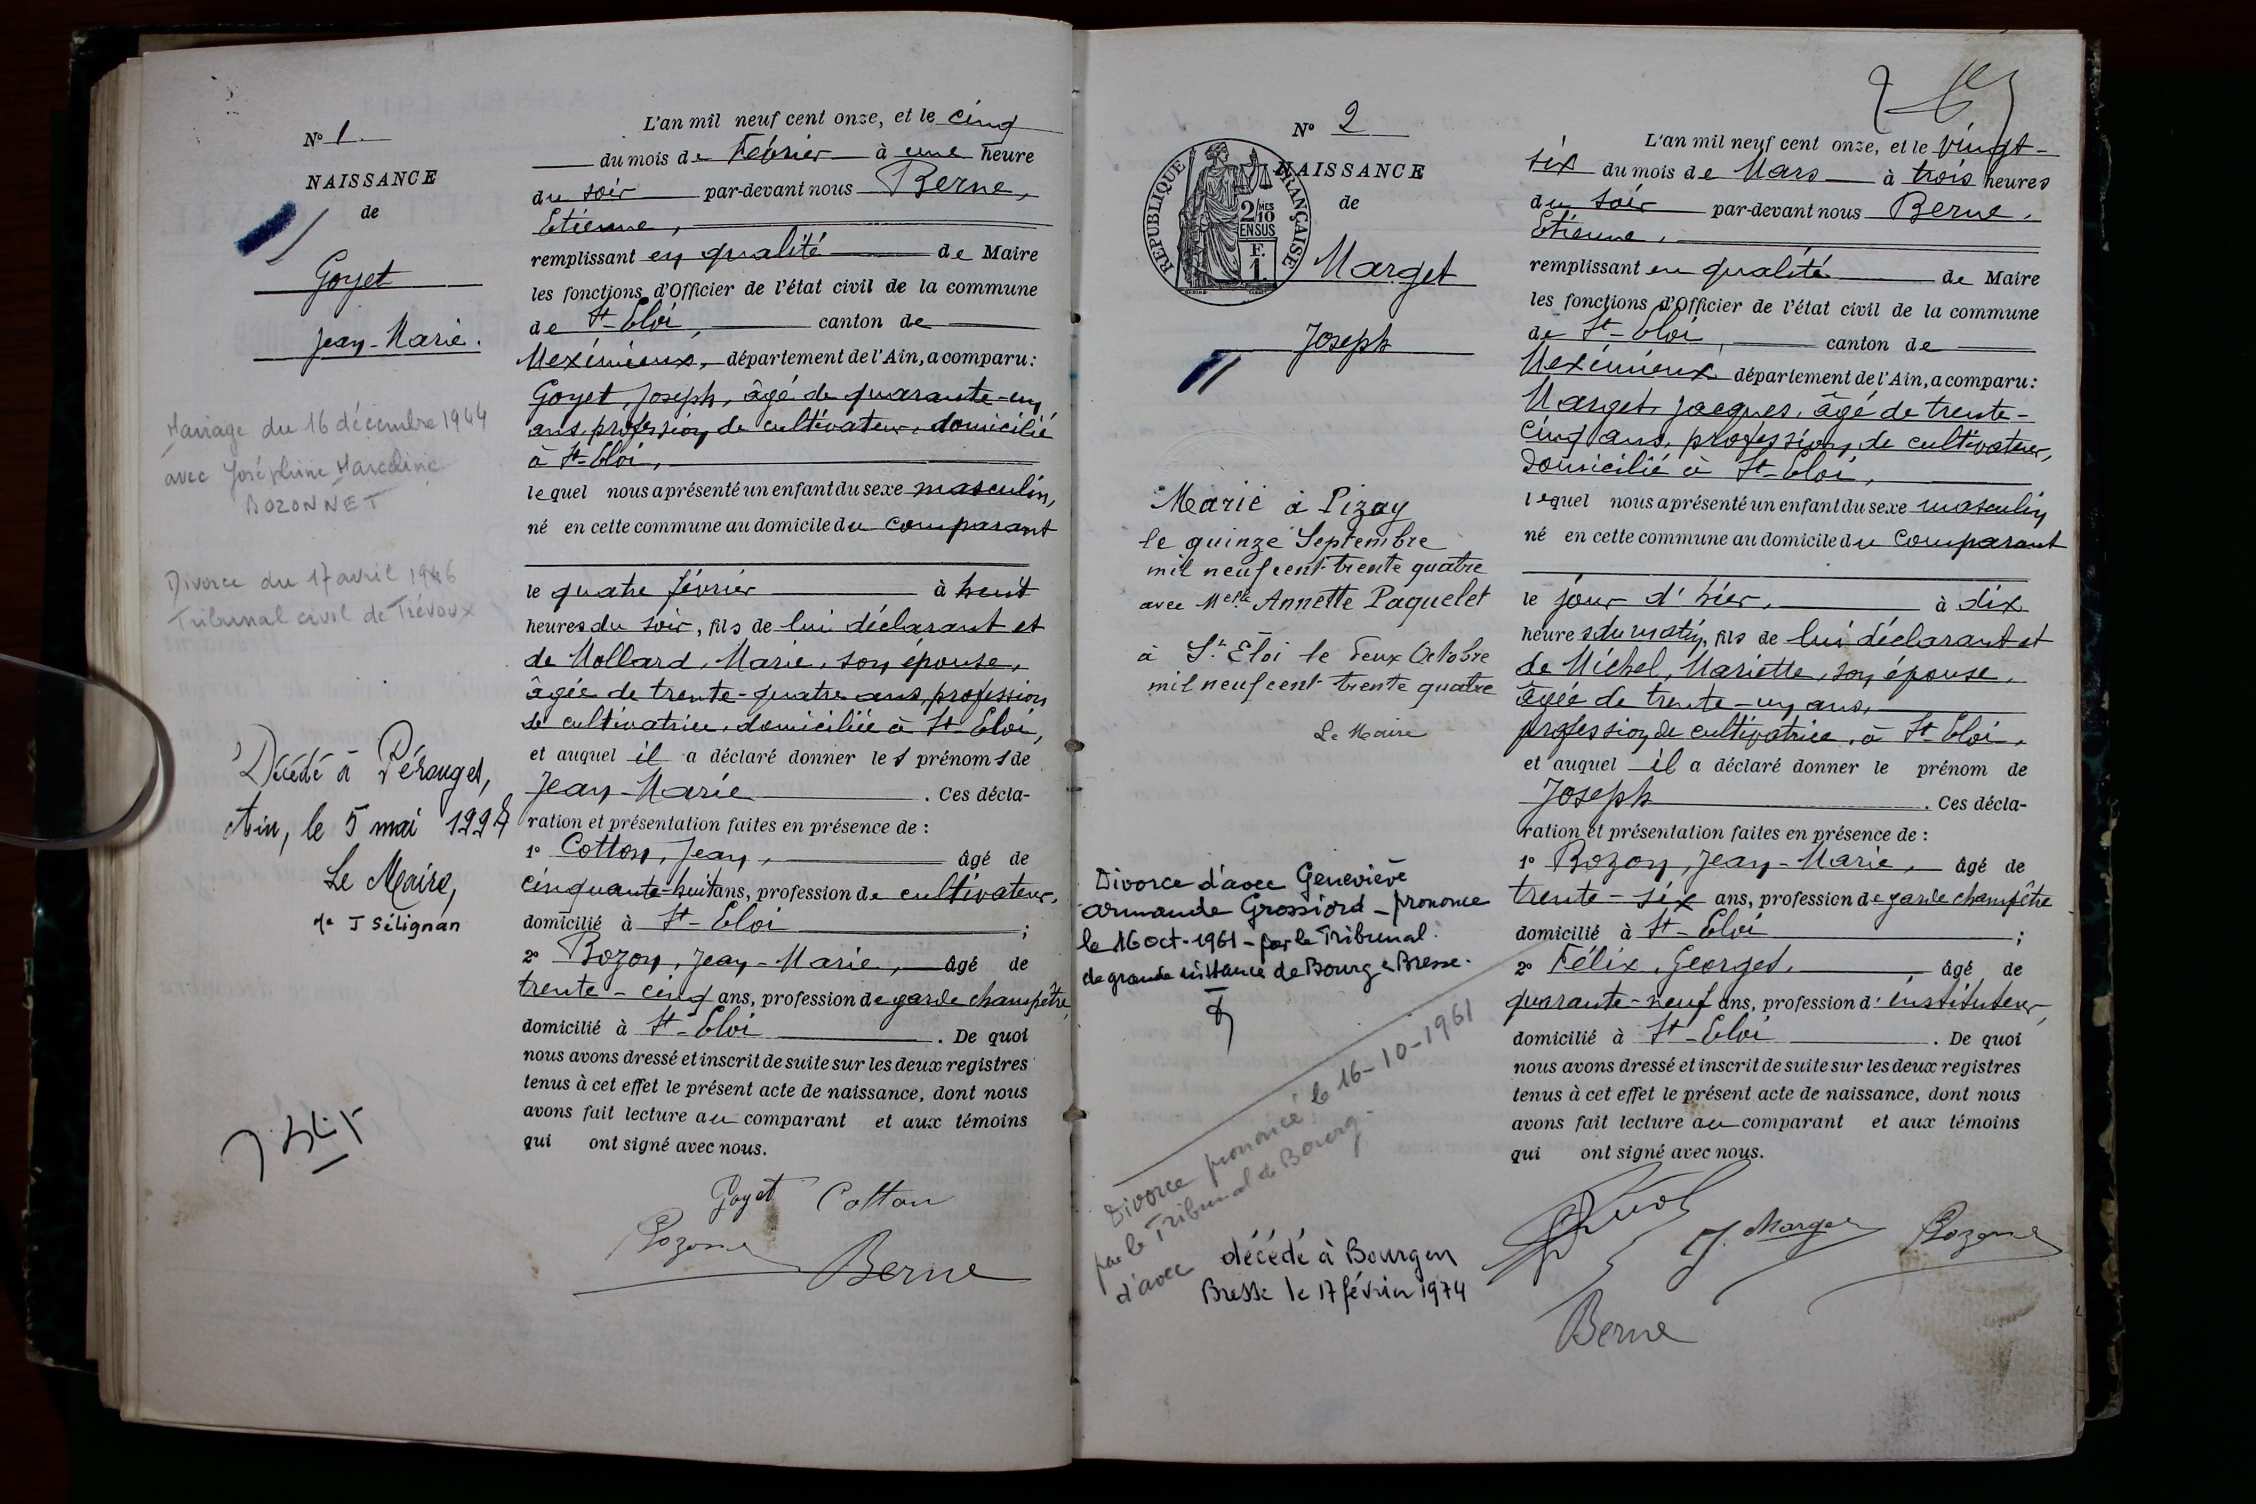 N° 1
NAISSANCE
de
Goyet
Jean-Marie.
Mariage du 16 décembre 1944
avec Joséphine Marceline
BOZONNET
Divorce du 17 avril 1946
Tribunal civil de Trévoux
Décédé à Pérouges,
Ain, le 5 mai 1994
Le Maire,
Me J Sélignan
L'an mil neuf cent onze, et le cinq
du mois de Février à une heure
du soir par-devant nous Berne,
Etienne,
remplissant en qualité de Maire
les fonctions d'Officier de l'état civil de la commune
de St-Eloi, canton de
Meximieux, département de l'Ain, a comparu:
Goyet, Joseph, âgé de quarante-un
ans, profession de cultivateur, domicilié
à St-Eloi,
lequel nous a présenté un enfant du sexe masculin,
né en cette commune au domicile du comparant
le quatre février à huit
heures du soir, fils de lui déclarant et
de Mollard, Marie, son épouse,
âgée de trente-quatre ans, profession
de cultivatrice, domiciliée à St-Eloi,
et auquel il a déclaré donner les prénoms de
Jean-Marie. Ces décla-
ration et présentation faites en présence de :
1° Cotton, Jean, âgé de
cinquante-huit ans, profession de cultivateur,
domicilié à St-Eloi ;
2° Bozon, Jean-Marie, âgé de
trente-cinq ans, profession de garde champêtre,
domicilié à St-Eloi. De quoi
nous avons dressé et inscrit de suite sur les deux registres
tenus à cet effet le présent acte de naissance, dont nous
avons fait lecture au comparant et aux témoins
qui ont signé avec nous.
Goyet Cotton
Bozon
Berne
N° 2
NAISSANCE
de
REPUBLIQUE FRANÇAISE
2/10 MES
EN SUS
F.
1.
Marget
Joseph
Marié à Pizay
le quinze Septembre
mil neuf cent trente quatre
avec Melle Annette Paquelet
à St Eloi le deux Octobre
mil neuf cent trente quatre
Le Maire
Divorce d'avec Geneviève
Armande Grossiord - prononcé
le 16 oct-1961 - par le Tribunal
de grande instance de Bourg en Bresse.
Divorce prononcé le 16-10-1961
par le Tribunal de Bourg.
d'avec
décédé à Bourg en
Bresse le 17 février 1974
L'an mil neuf cent onze, et le vingt-
six du mois de Mars à trois heures
du soir par-devant nous Berne,
Etienne,
remplissant en qualité de Maire
les fonctions d'Officier de l'état civil de la commune
de St-Eloi, canton de
Meximieux département de l'Ain, a comparu:
Marget, Jacques, âgé de trente-
cinq ans, profession de cultivateur,
domicilié à St-Eloi,
lequel nous a présenté un enfant du sexe masculin
né en cette commune au domicile du comparant
le jour d'hier, à dix
heures du matin, fils de lui déclarant et
de Michel, Mariette, son épouse,
âgée de trente-un ans,
profession de cultivatrice, à St-Eloi,
et auquel il a déclaré donner le prénom de
Joseph. Ces décla-
ration et présentation faites en présence de :
1° Bozon, Jean-Marie, âgé de
trente-six ans, profession de garde champêtre
domicilié à St-Eloi ;
2° Félix, Georges, âgé de
quarante-neuf ans, profession d'instituteur,
domicilié à St-Eloi. De quoi
nous avons dressé et inscrit de suite sur les deux registres
tenus à cet effet le présent acte de naissance, dont nous
avons fait lecture au comparant et aux témoins
qui ont signé avec nous.
J. Marget Bozon
Berne